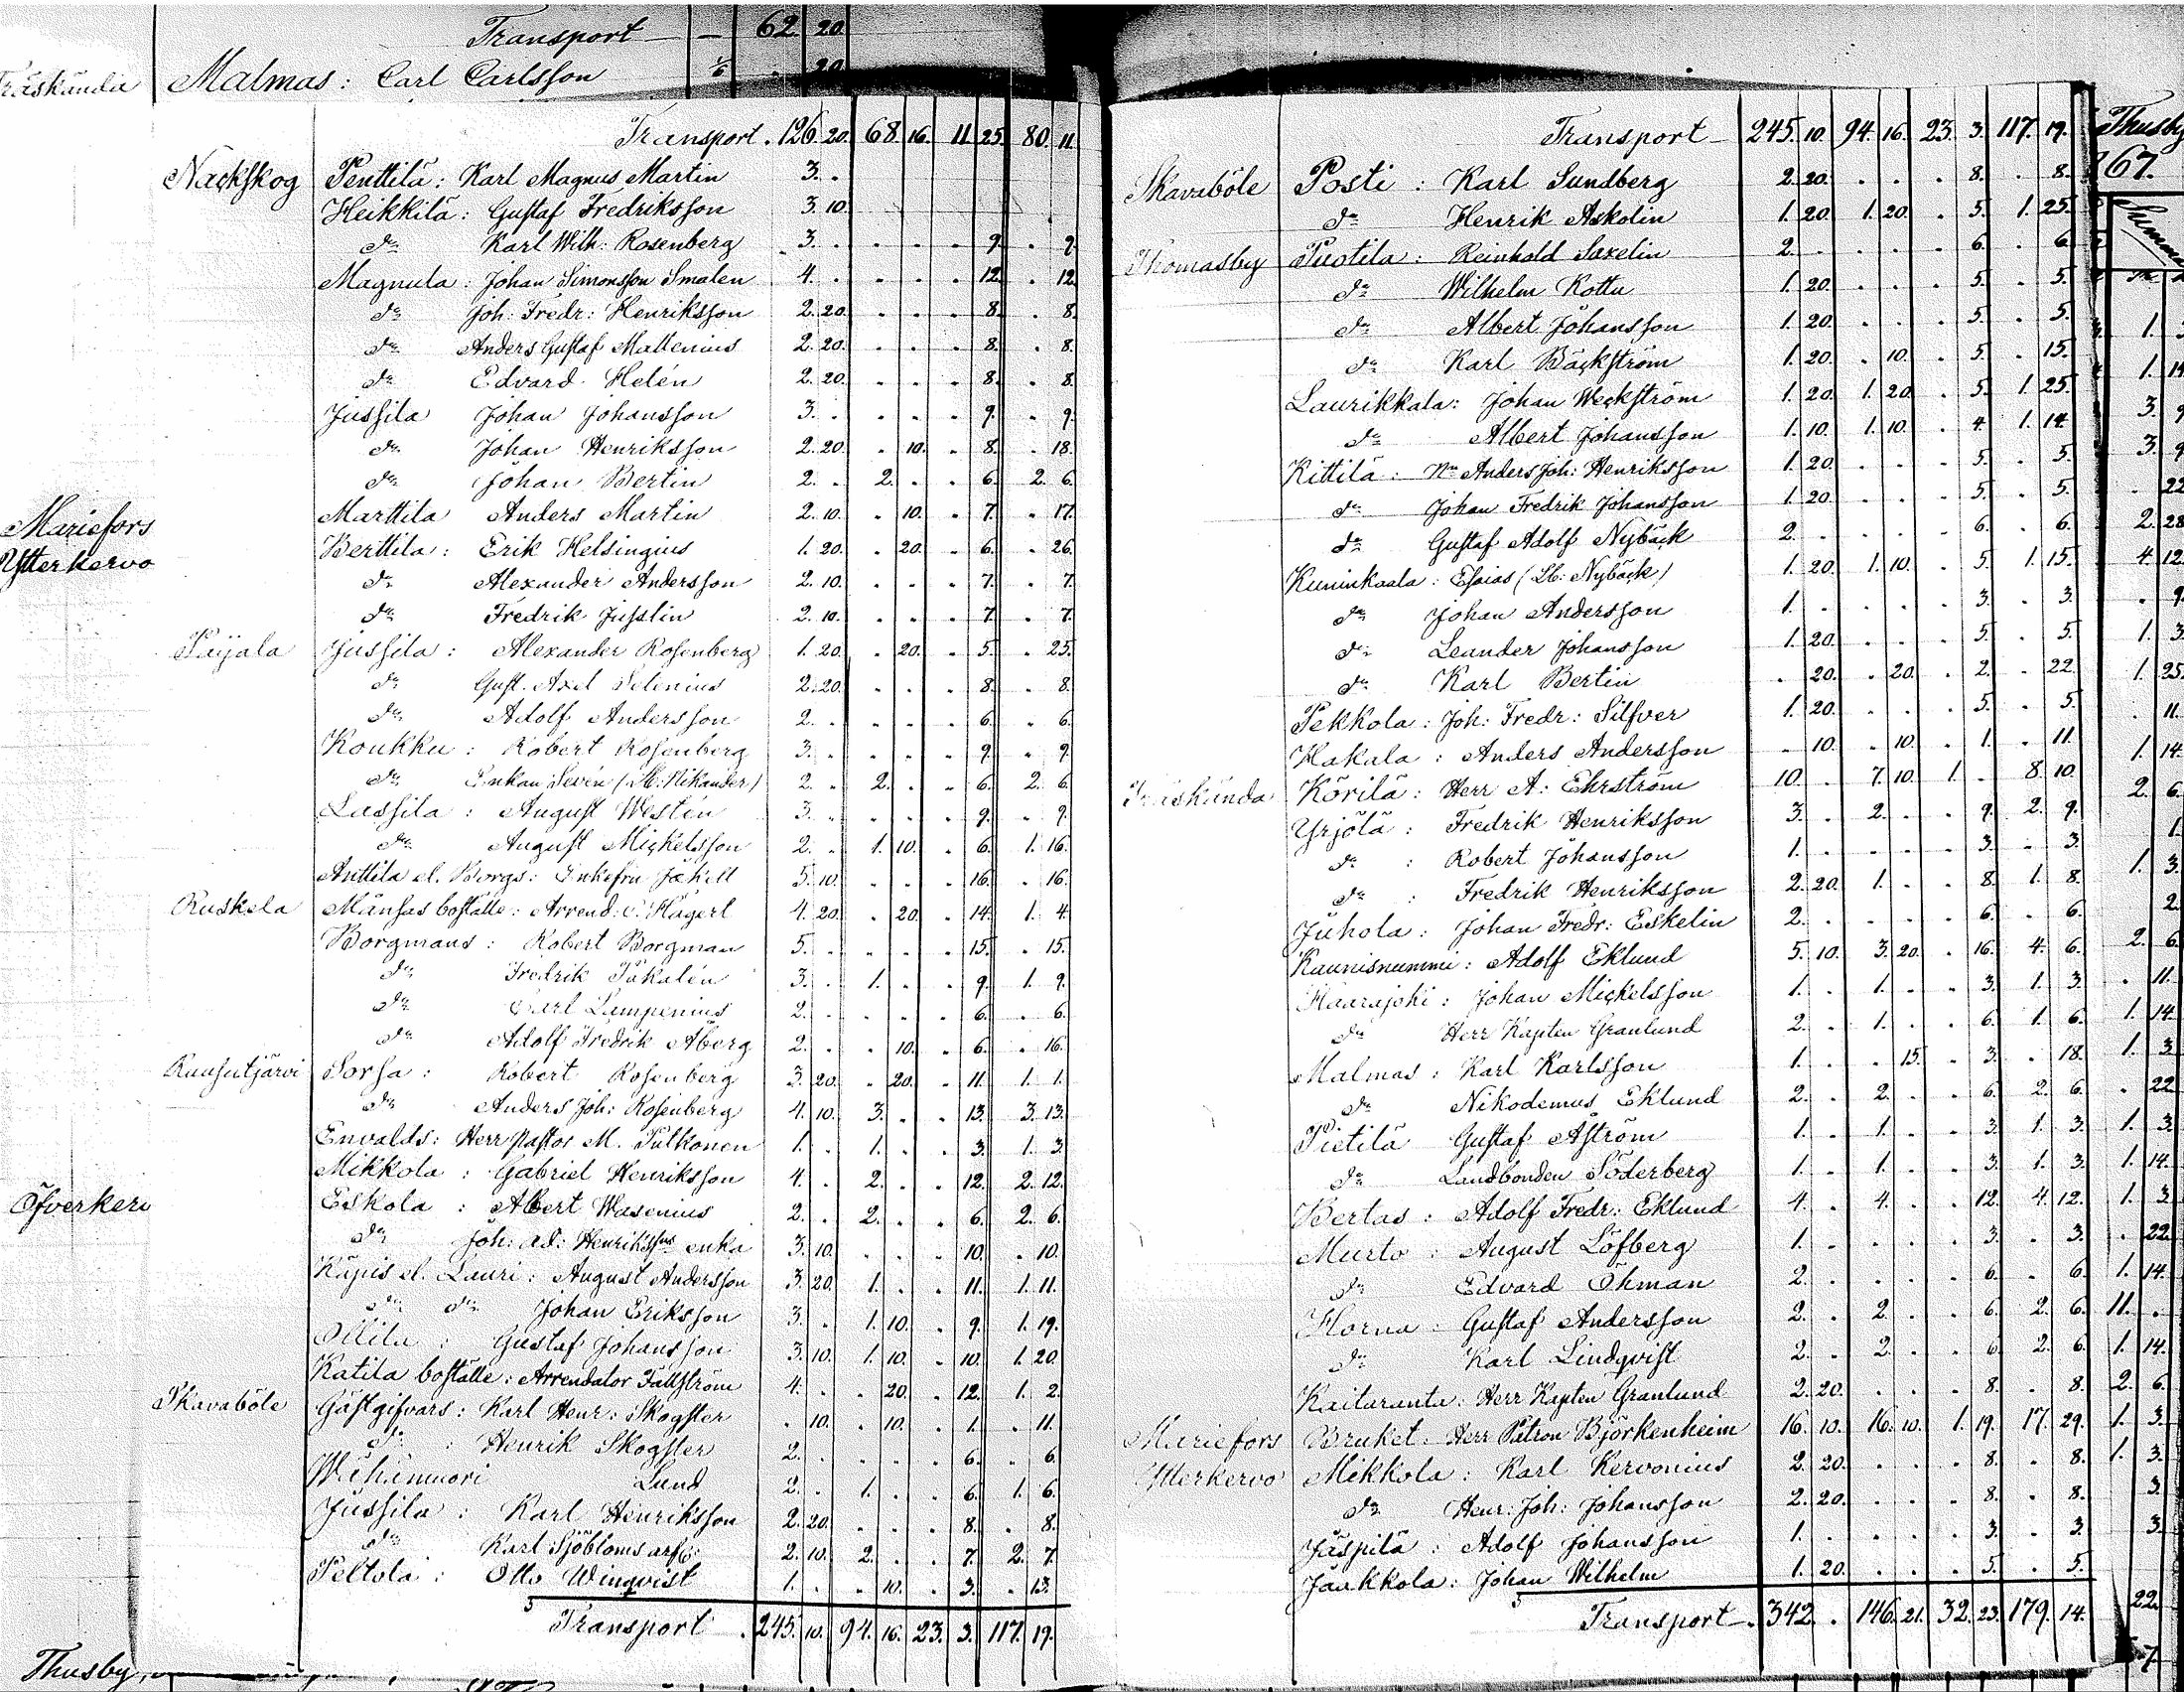 Transport — 62. 20.
Träskända Malmas: Carl Carlsson 1/6 . 20
Transport. 126. 20. 68. 16. 11. 25. 80. 11.
Nackskog Penttilä: Karl Magnus Martin 3. .
Heikkilä: Gustaf Fredriksson 3. 10.
do Karl Wilh: Rosenberg 3. . . . . 9. . 9.
Magnula: Johan Simonsson Smalen 4. . . . . 12. . 12.
do Joh: Fredr: Henriksson 2. 20. . . . 8. . 8.
do Anders Gustaf Mattenius 2. 20. . . . 8. . 8.
do Edvard Helén 2. 20. . . . 8. . 8.
Jussila Johan Johansson 3. . . . . 9. . 9.
do Johan Henriksson 2. 20. . 10. . 8. . 18.
do Johan Bertin 2. . 2. . . 6. 2. 6.
Marttila Anders Martin 2. 10. . 10. . 7. . 17.
Berttila: Erik Helsingius 1. 20. . 20. . 6. . 26.
do Alexander Andersson 2. 10. . . . 7. . 7.
do Fredrik Jusslin 2. 10. . . . 7. . 7.
Paijala Jussila: Alexander Rosenberg 1. 20. . 20. . 5. . 25.
do Gust. Axel Selenius 2. 20. . . . 8. . 8.
do Adolf Andersson 2. . . . . 6. . 6.
Koukku: Robert Rosenberg 3. . . . . 9. . 9.
do Enkan Sevén (Lb: Nikander) 2. . 2. . . 6. 2. 6.
Lassila: August Westén 3. . . . . 9. . 9.
do August Mickelsson 2. . 1. 10. . 6. 1. 16.
Anttila el. Borgs: Enkefru 5. 10. . . . 16. . 16.
Ruskela Månsas boställe: Arrend: v: Hägert 4. 20. . 20. . 14. 1. 4.
Borgmans: Robert Borgman 5. . . . . 15. . 15.
do Fredrik Pakalén 3. . 1. . . 9. 1. 9.
do Karl Lampenius 2. . . . . 6. . 6.
do Adolf Fredrik Åberg 2. . . 10. . 6. . 16.
Ruusutjärvi Sorsa: Robert Rosenberg 3. 20. . 20. . 11. 1. 1.
do Anders Joh: Rosenberg 4. 10. 3. . . 13. 3. 13.
Envalds: Herr Pastor M. Pulkonen 1. . 1. . . 3. 1. 3.
Mikkola: Gabriel Henriksson 4. . 2. . . 12. 2. 12.
Eskola: Albert Wasenius 2. . 2. . . 6. 2. 6.
do Joh: Ad: Henrikssons enka 3. 10. . . . 10. . 10.
Käpis el. Lauri: August Andersson 3. 20. 1. . . 11. 1. 11.
do do Johan Eriksson 3. . 1. 10. . 9. 1. 19.
Ollila: Gustaf Johansson 3. 10. 1. 10. . 10. 1. 20.
Katila boställe: Arrendator Fällström 4. . . 20. . 12. 1. 2.
Skavaböle Gästgifvars: Karl Henr: Skogster . 10. . 10. . 1. . 11.
do: Henrik Skogster 2. . . . . 6. . 6.
Wihinmori Lund 2. . 1. . . 6. 1. 6.
Jussila: Karl Henriksson 2. 20. . . . 8. . 8.
do Karl Sjöbloms arfv: 2. 10. 2. . . 7. 2. 7.
Peltola: Otto Winqvist 1. . . 10. . 3. . 13.
Transport. 245. 10. 94. 16. 23. 3. 117. 19.
Mariefors
Ytterkervo
Öfverkerv
Thusby,
Transport 245. 10. 94. 16. 23. 3. 117. 19.
Skavaböle Posti: Karl Sundberg 2. 20. . . . 8. . 8.
do Henrik Askolin 1. 20. 1. 20. . 5. 1. 25.
Thomasby Puotila: Reinhold Saxelin 2. . . . . 6. . 6.
do Wilhelm Kottu 1. 20. . . . 5. . 5.
do Albert Johansson 1. 20. . . . 5. . 5.
do Karl Bäckström 1. 20. . 10. . 5. . 15.
Laurikkala: Johan Weckström 1. 20. 1. 20. . 5. 1. 25.
do Albert Johansson 1. 10. 1. 10. . 4. 1. 14.
Kittilä: Nn Anders Joh: Henriksson 1. 20. . . . 5. . 5.
do Johan Fredrik Johansson 1. 20. . . . 5. . 5.
do Gustaf Adolf Nybäck 2. . . . . 6. . 6.
Kuninkaala: Esaias (Lb: Nybäck) 1. 20. 1. 10. . 5. 1. 15.
do Johan Andersson 1. . . . . 3. . 3.
do Leander Johansson 1. 20. . . . 5. . 5.
do Karl Bertin . 20. . 20. . 2. . 22.
Pekkola: Joh: Fredr: Silfver 1. 20. . . . 5. . 5.
Hakala: Anders Andersson . 10. . 10. . 1. . 11.
Träskända Körilä: Herr A: Ehrström 10. . 7. 10. 1. . 8. 10.
Yrjölä: Fredrik Henriksson 3. . 2. . . 9. 2. 9.
do: Robert Johansson 1. . . . . 3. . 3.
do: Fredrik Henriksson 2. 20. 1. . . 8. 1. 8.
Juhola: Johan Fredr: Eskelin 2. . . . . 6. . 6.
Kaunisnummi: Adolf Eklund 5. 10. 3. 20. . 16. 4. 6.
Haarajoki: Johan Mickelsson 1. . 1. . . 3. 1. 3.
do Herr Kapten Granlund 2. . 1. . . 6. 1. 6.
Malmas: Karl Karlsson 1. . . 15. . 3. . 18.
do Nikodemus Eklund 2. . 2. . . 6. 2. 6.
Pietilä Gustaf Åström 1. . 1. . . 3. 1. 3.
do Landbonden Söderberg 1. . 1. . . 3. 1. 3.
Bertas: Adolf Fredr: Eklund 4. . 4. . . 12. 4. 12.
Murto: August Löfberg 1. . . . . 3. . 3.
do Edvard Öhman 2. . . . . 6. . 6.
Horna: Gustaf Andersson 2. . 2. . . 6. 2. 6.
do Karl Lindqvist 2. . 2. . . 6. 2. 6.
Kaitaranta: Herr Kapten Granlund 2. 20. . . . 8. . 8.
Mariefors Bruket: Herr Patron Björkenheim 16. 10. 16. 10. 1. 19. 17. 29.
Ytterkervo Mikkola: Karl Kervonius 2. 20. . . . 8. . 8.
do Henr: Joh: Johansson 2. 20. . . . 8. . 8.
Jäspilä: Adolf Johansson 1. . . . . 3. . 3.
Jaakkola: Johan Wilhelm 1. 20. . . . 5. . 5.
Transport. 342. . 146. 21. 32. 23. 179. 14.
Thusby
67.
Summa
1.
1. 14
3. 9
3. 9
. 22
2. 28
4. 12
. 9.
1. 3.
1. 25.
. 11.
1. 14.
2. 6.
1.
1. 3.
2.
2. 6.
. 11.
1. 14.
1. 3.
. 22
1. 3.
1. 14.
1. 3.
. 22.
1. 14.
11. .
1. 14.
2. 6.
1. 3.
1. 3.
3.
3.
22.
7.